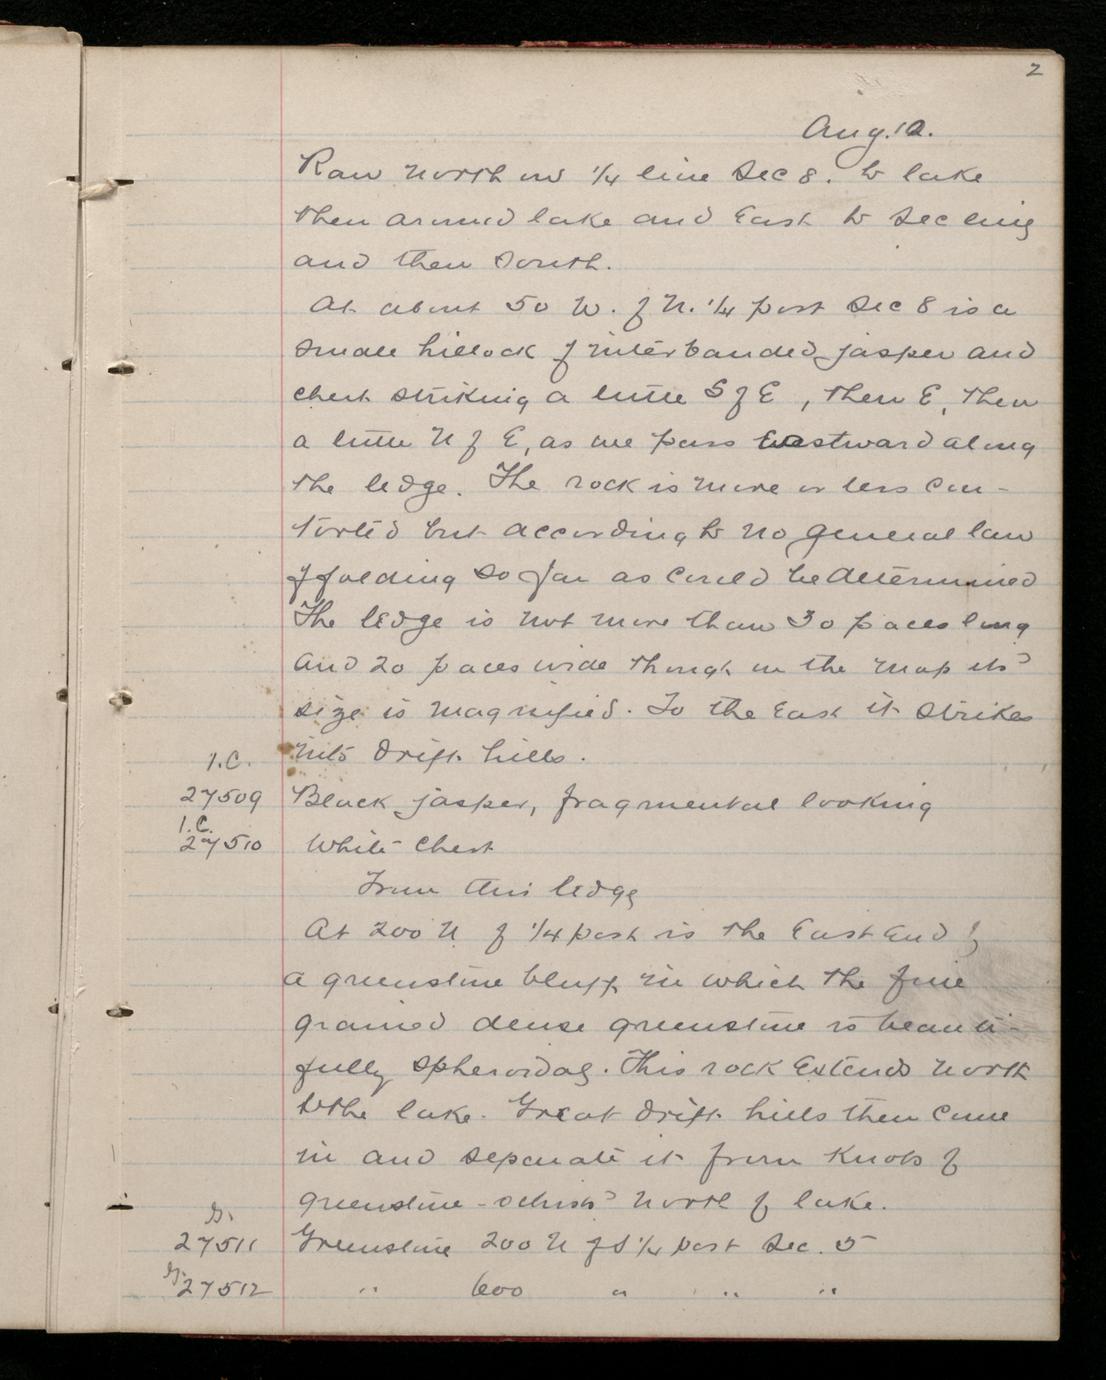 2
Aug. 10.
Ran North on 1/4 line Sec 8. to lake
then around lake and East to Sec line
and then South.
At about 50 W. of N. 1/4 post Sec 8 is a
small hillock of interbanded jasper and
chert striking a little S of E, then E, then
a little N of E, as we pass Eastward along
the ledge. The rock is more or less con-
torted but according to no general law
of folding so far as could be determined
The ledge is not more than 30 paces long
and 20 paces wide though on the map its
size is magnified. To the East it strikes
into drift hills.
I.C.
27509 Black jasper, fragmental looking
I.C.
27510 White Chert
From this ledge
At 200 N of 1/4 post is the East End of
a greenstone bluff in which the fine
grained dense greenstone is beauti-
fully spheroidal. This rock Extends North
to the lake. Great drift hills then come
in and separate it from Knobs of
greenstone-schists North of lake.
G.
27511 Greenstone 200 N of S 1/4 post Sec. 5
G.
27512 " 600 " " "